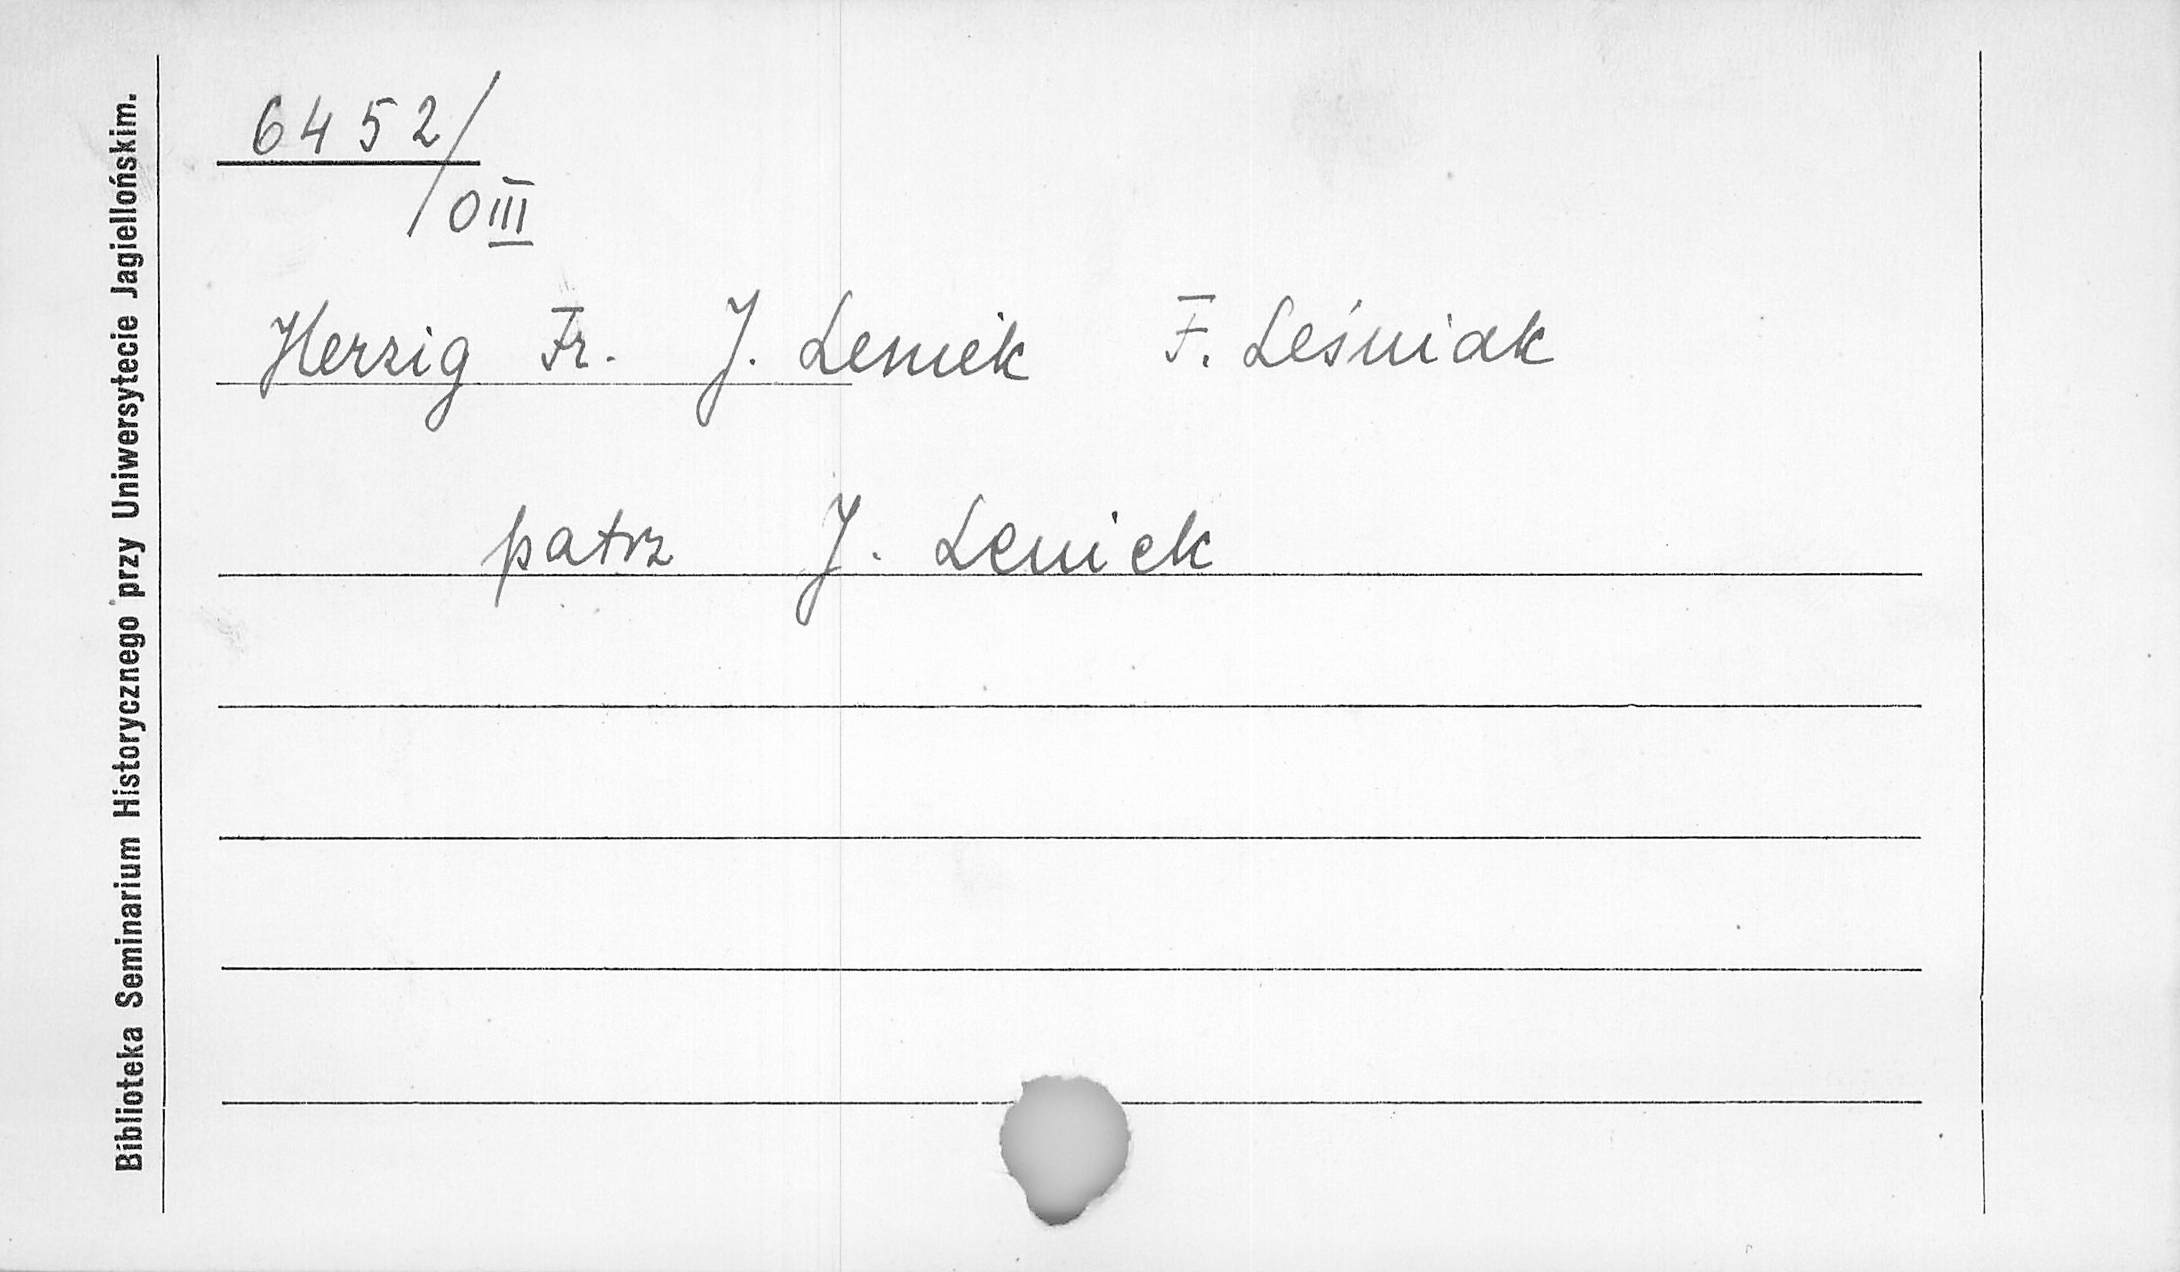 6452/
OIII
Herzig Fr. J. Leniek F. Leśniak
patrz J. Leniek
Biblioteka Seminarium Historycznego przy Uniwersytecie Jagiellońskim.